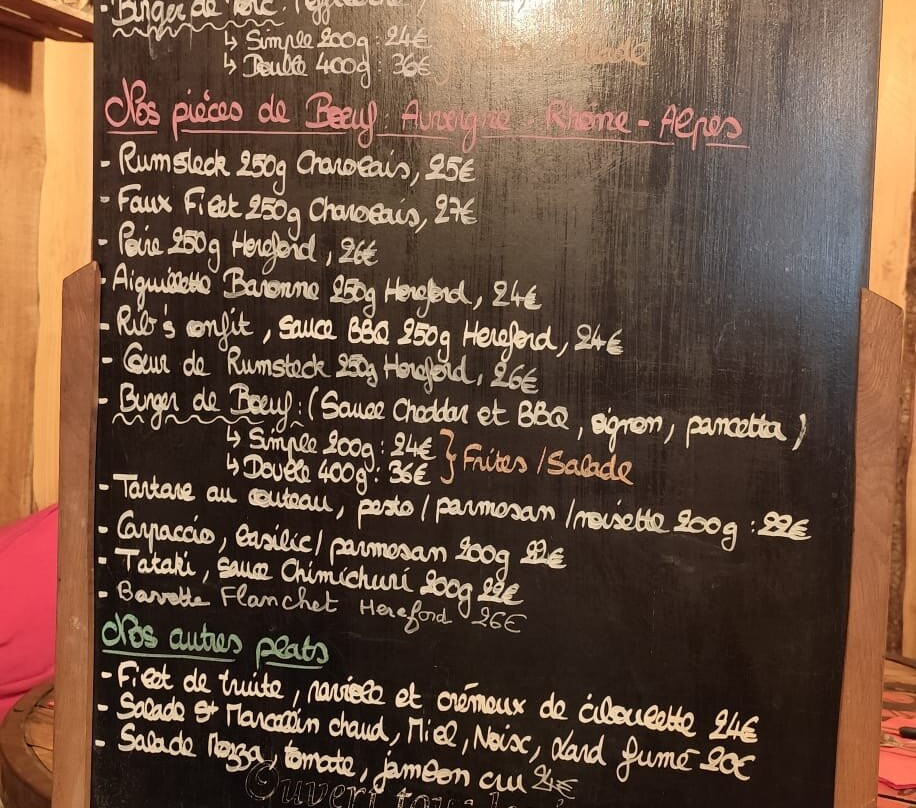 - Burger de Porc :
↳ Simple 200g : 24€
↳ Double 400g : 36€
Nos pièces de Boeuf : Auvergne - Rhône - Alpes
- Rumsteck 250g Charolais, 25€
- Faux Filet 250g Charolais, 27€
- Poire 250g Hereford, 26€
- Aiguillette Baronne 250g Hereford, 24€
- Rib's confit, sauce BBQ 250g Hereford, 24€
- Coeur de Rumsteck 250g Hereford, 26€
- Burger de Boeuf : (Sauce Cheddar et BBQ, oignon, pancetta)
↳ Simple 200g : 24€
↳ Double 400g : 36€ } Frites / Salade
- Tartare au couteau, pesto / parmesan / noisette 200g : 22€
- Carpaccio, basilic / parmesan 200g 22€
- Tataki, sauce Chimichuri 200g 22€
- Bavette Flanchet Hereford 26€
Nos autres plats
- Filet de truite, raviole et crémeux de ciboulette 24€
- Salade St Marcellin chaud, Miel, Noix, Lard fumé 20€
- Salade Mozza, tomate, jambon cru 24€
Ouvert